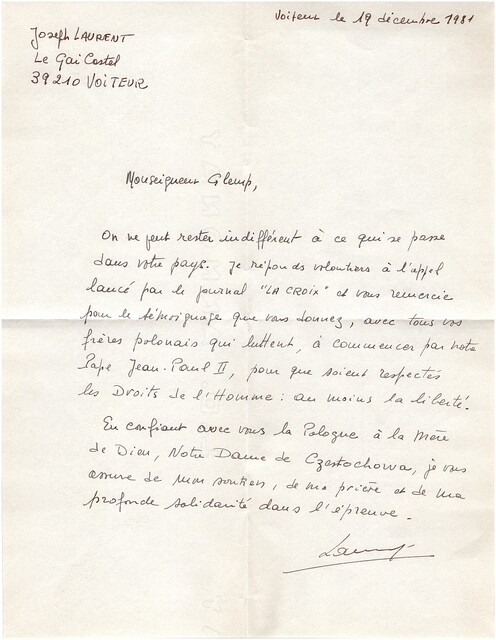 Voiteur le 19 décembre 1981
Joseph LAURENT
Le Gai Castel
39210 VOITEUR
Monseigneur Glemp,
On ne peut rester indifférent à ce qui se passe
dans votre pays. Je réponds volontiers à l'appel
lancé par le journal "LA CROIX" et vous remercie
pour le témoignage que vous donnez, avec tous vos
frères polonais qui luttent, à commencer par notre
Pape Jean-Paul II, pour que soient respectés
les Droits de l'Homme : au moins la liberté.
En confiant avec vous la Pologne à la Mère
de Dieu, Notre Dame de Czestochowa, je vous
assure de mon soutien, de ma prière et de ma
profonde solidarité dans l'épreuve.
Laurent